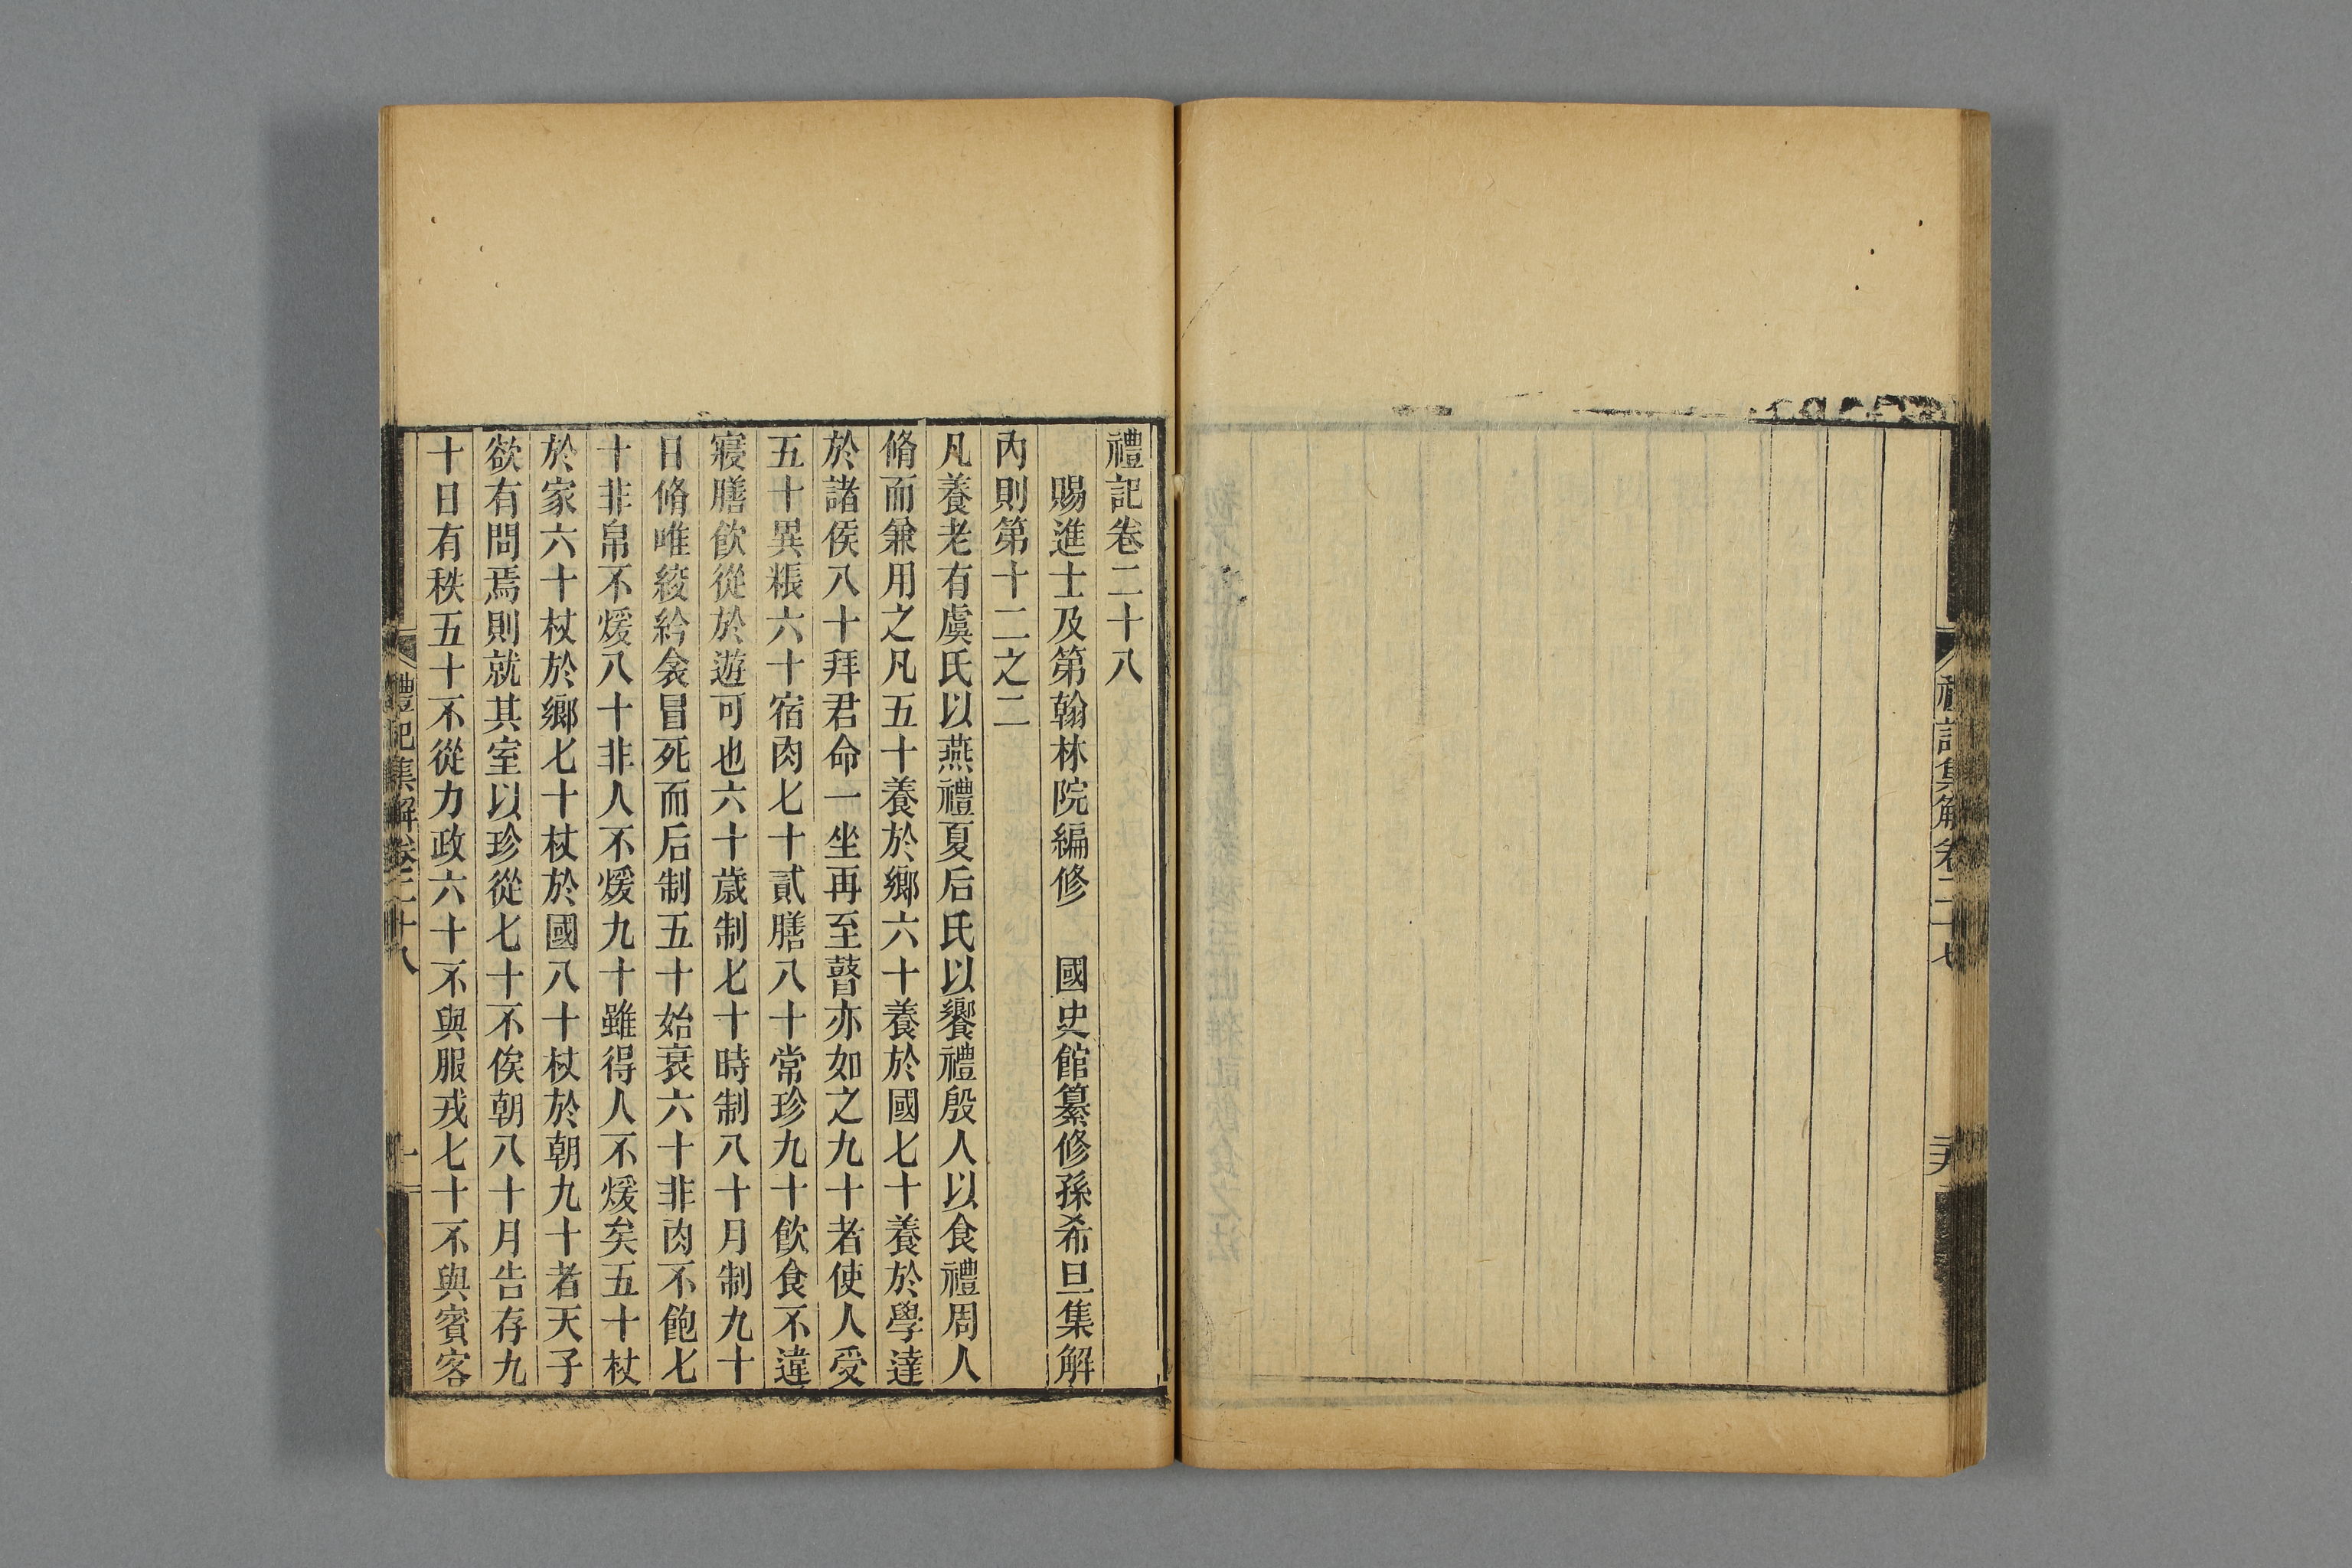 禮記集解卷二十七
禮記卷二十八
賜進士及第翰林院編修　國史館纂修孫希旦集解
內則第十二之二
凡養老有虞氏以燕禮夏后氏以饗禮殷人以食禮周人
脩而兼用之凡五十養於鄉六十養於國七十養於學達
於諸侯八十拜君命一坐再至瞽亦如之九十者使人受
五十異粻六十宿肉七十貳膳八十常珍九十飲食不違
寢膳飲從於遊可也六十歲制七十時制八十月制九十
日脩唯絞紟衾冒死而后制五十始衰六十非肉不飽七
十非帛不煖八十非人不煖九十雖得人不煖矣五十杖
於家六十杖於鄉七十杖於國八十杖於朝九十者天子
欲有問焉則就其室以珍從七十不俟朝八十月告存九
十日有秩五十不從力政六十不與服戎七十不與賓客
禮記集解卷二十八
一